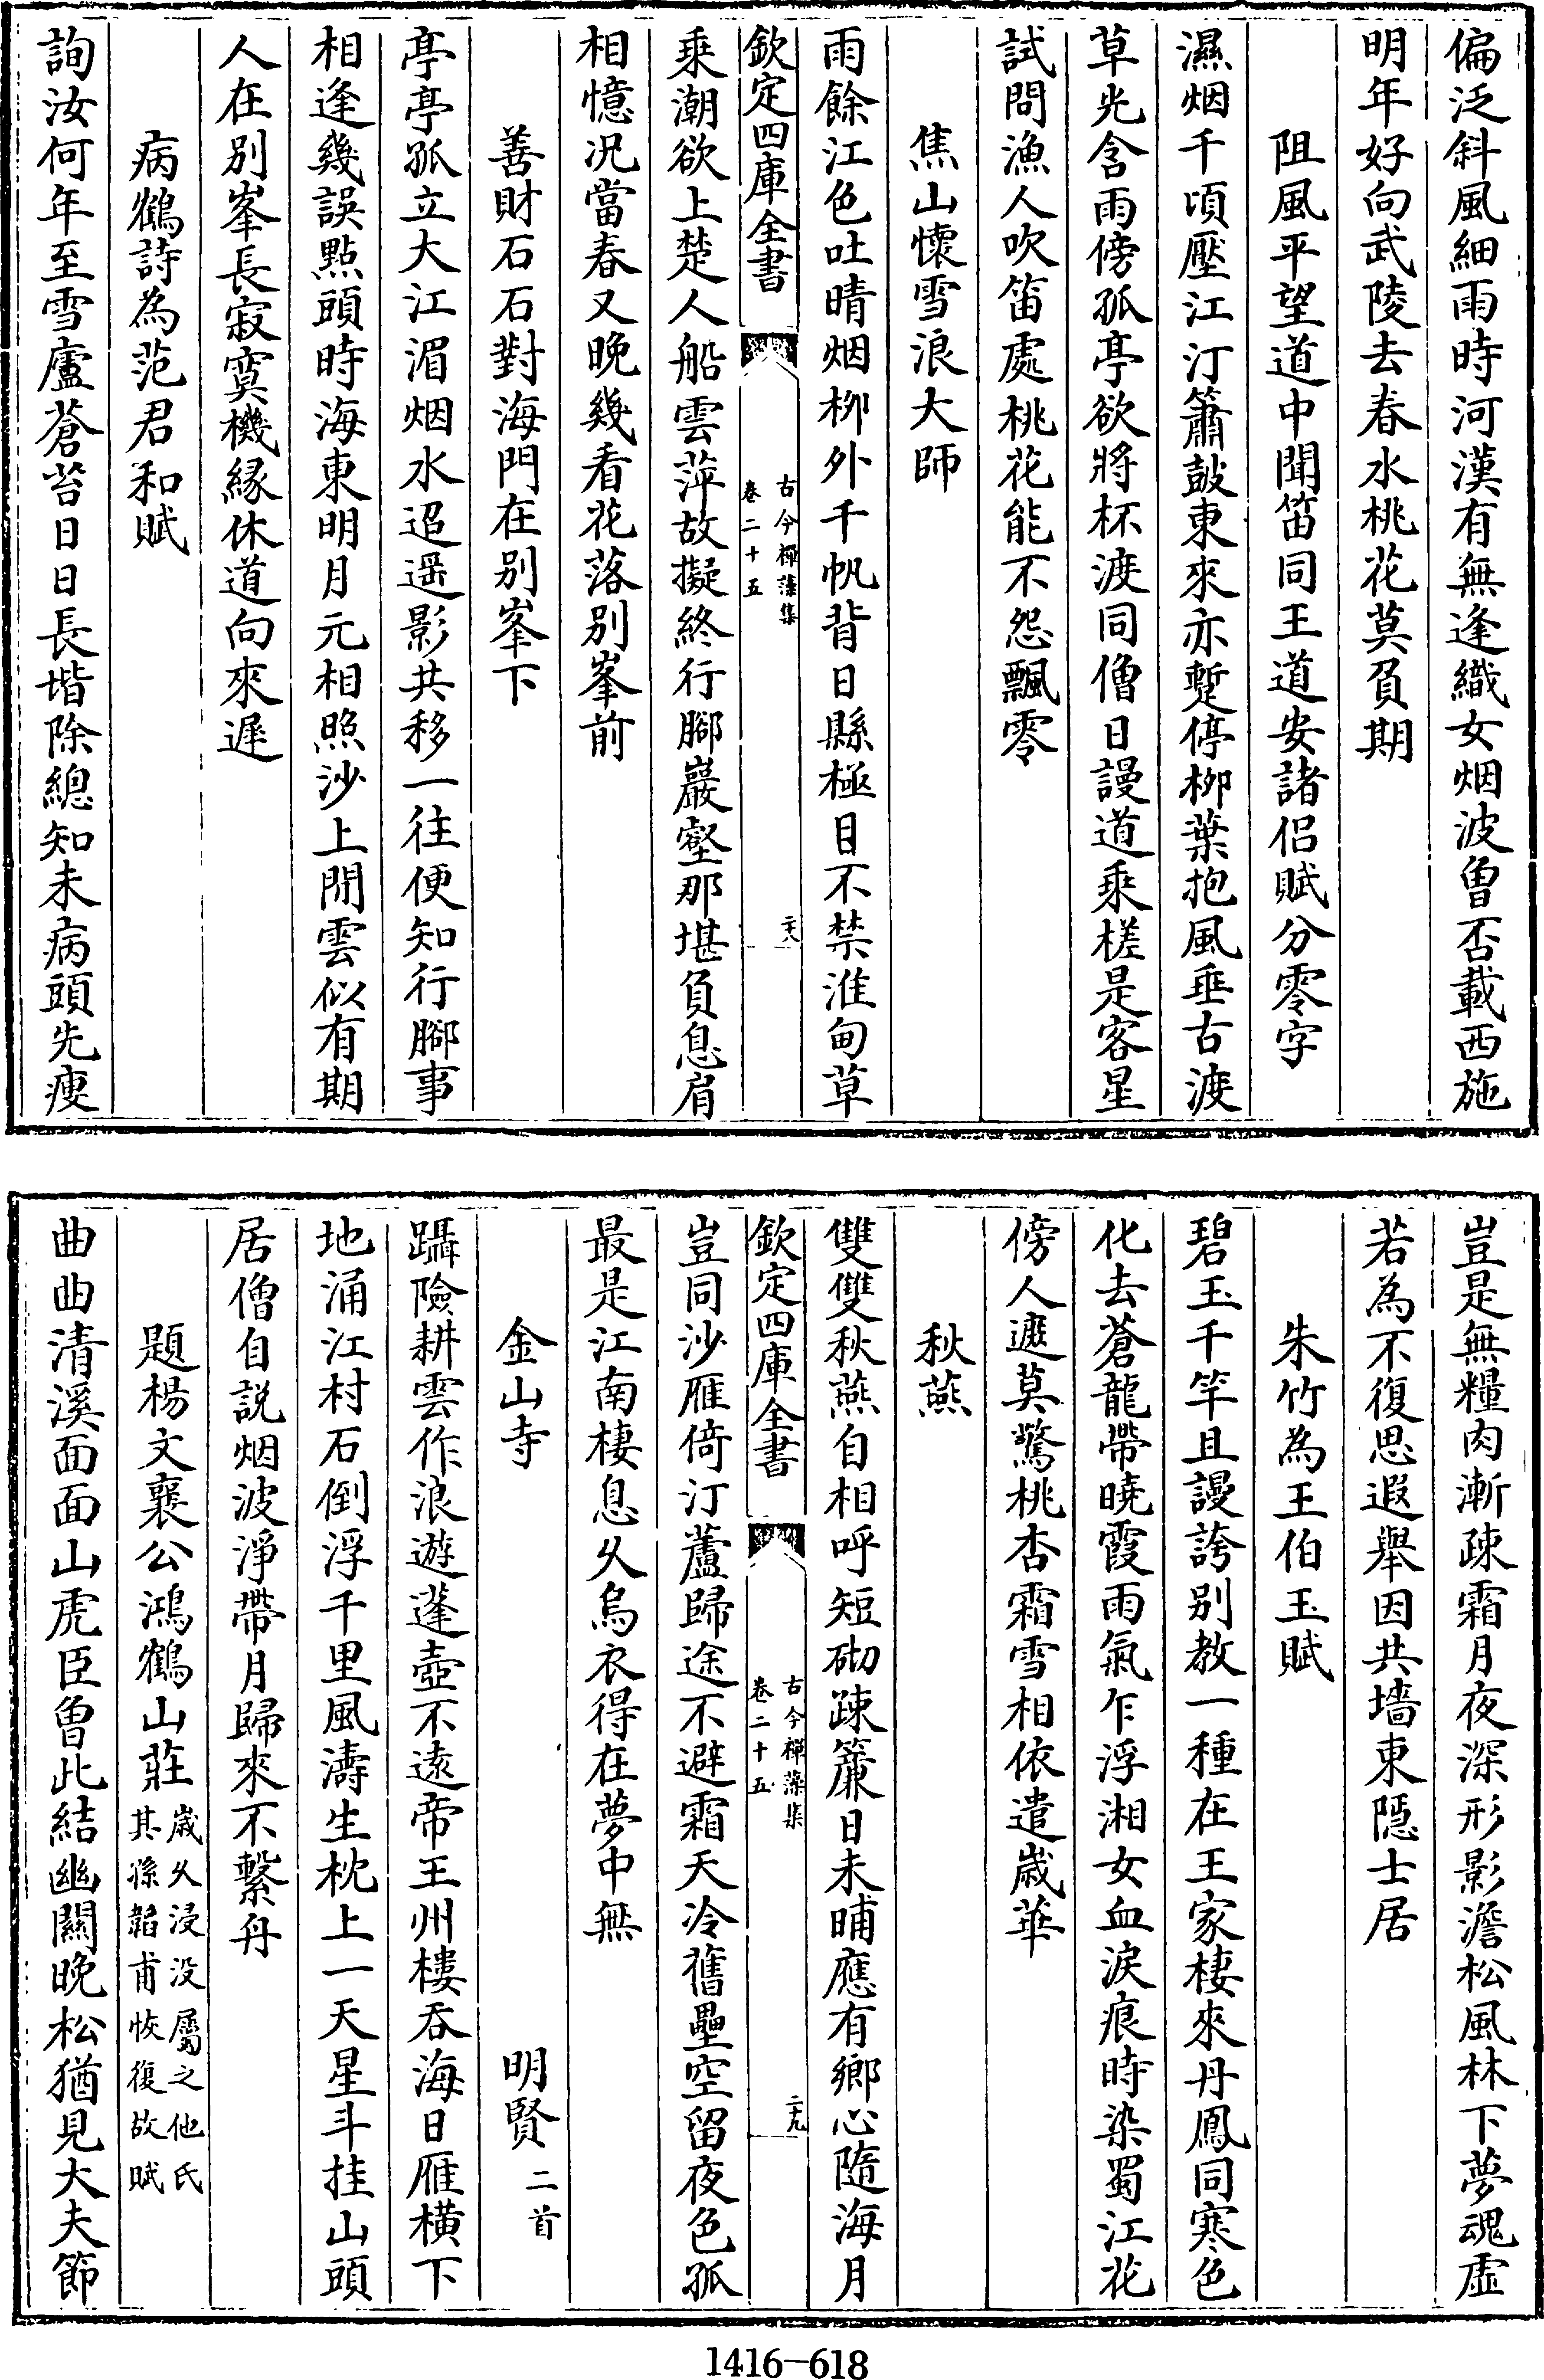 偏泛斜風細雨時河漢有無逢織女烟波曾否載西施
明年好向武陵去春水桃花莫負期
阻風平望道中聞笛同王道安諸侣賦分零字
濕烟千頃壓江汀簫鼓東來亦蹔停栁葉抱風垂古渡
草光含雨傍孤亭欲將杯渡同僧日謾道乘槎是客星
試問漁人吹笛處桃花能不怨飄零
焦山懷雪浪大師
雨餘江色吐晴烟栁外千帆背日縣極目不禁淮甸草
欽定四庫全書
古今禪藻集
卷二十五
二十八
乘潮欲上楚人船雲萍故擬終行腳巖壑那堪負息肩
相憶况當春又晚幾看花落别峯前
善財石石對海門在别峯下
亭亭孤立大江湄烟水迢遥影共移一往便知行腳事
相逢幾誤點頭時海東明月元相照沙上閒雲似有期
人在别峯長寂寞機縁休道向來遲
病鶴詩為范君和賦
詢汝何年至雪廬蒼苔日日長堦除總知未病頭先瘦
豈是無糧肉漸疎霜月夜深形影澹松風林下夢魂虚
若為不復思遐舉因共墻東隠士居
朱竹為王伯玉賦
碧玉千竿且謾誇别教一種在王家棲來丹鳳同寒色
化去蒼龍帶曉霞雨氣乍浮湘女血淚痕時染蜀江花
傍人遮莫驚桃杏霜雪相依遣歲華
秋燕
雙雙秋燕自相呼短砌疎簾日未晡應有鄉心隨海月
欽定四庫全書
古今禪藻集
卷二十五
二十九
豈同沙雁倚汀蘆歸途不避霜天冷舊壘空留夜色孤
最是江南棲息乆烏衣得在夢中無
金山寺 明賢二首
躡險耕雲作浪遊蓬壺不逺帝王州樓吞海日雁横下
地涌江村石倒浮千里風濤生枕上一天星斗挂山頭
居僧自説烟波淨帶月歸來不繫舟
題楊文襄公鴻鶴山莊歲乆浸没屬之他氏
其孫韜甫恢復故賦
曲曲清溪面面山虎臣曾此結幽關晚松猶見大夫節
1416—618